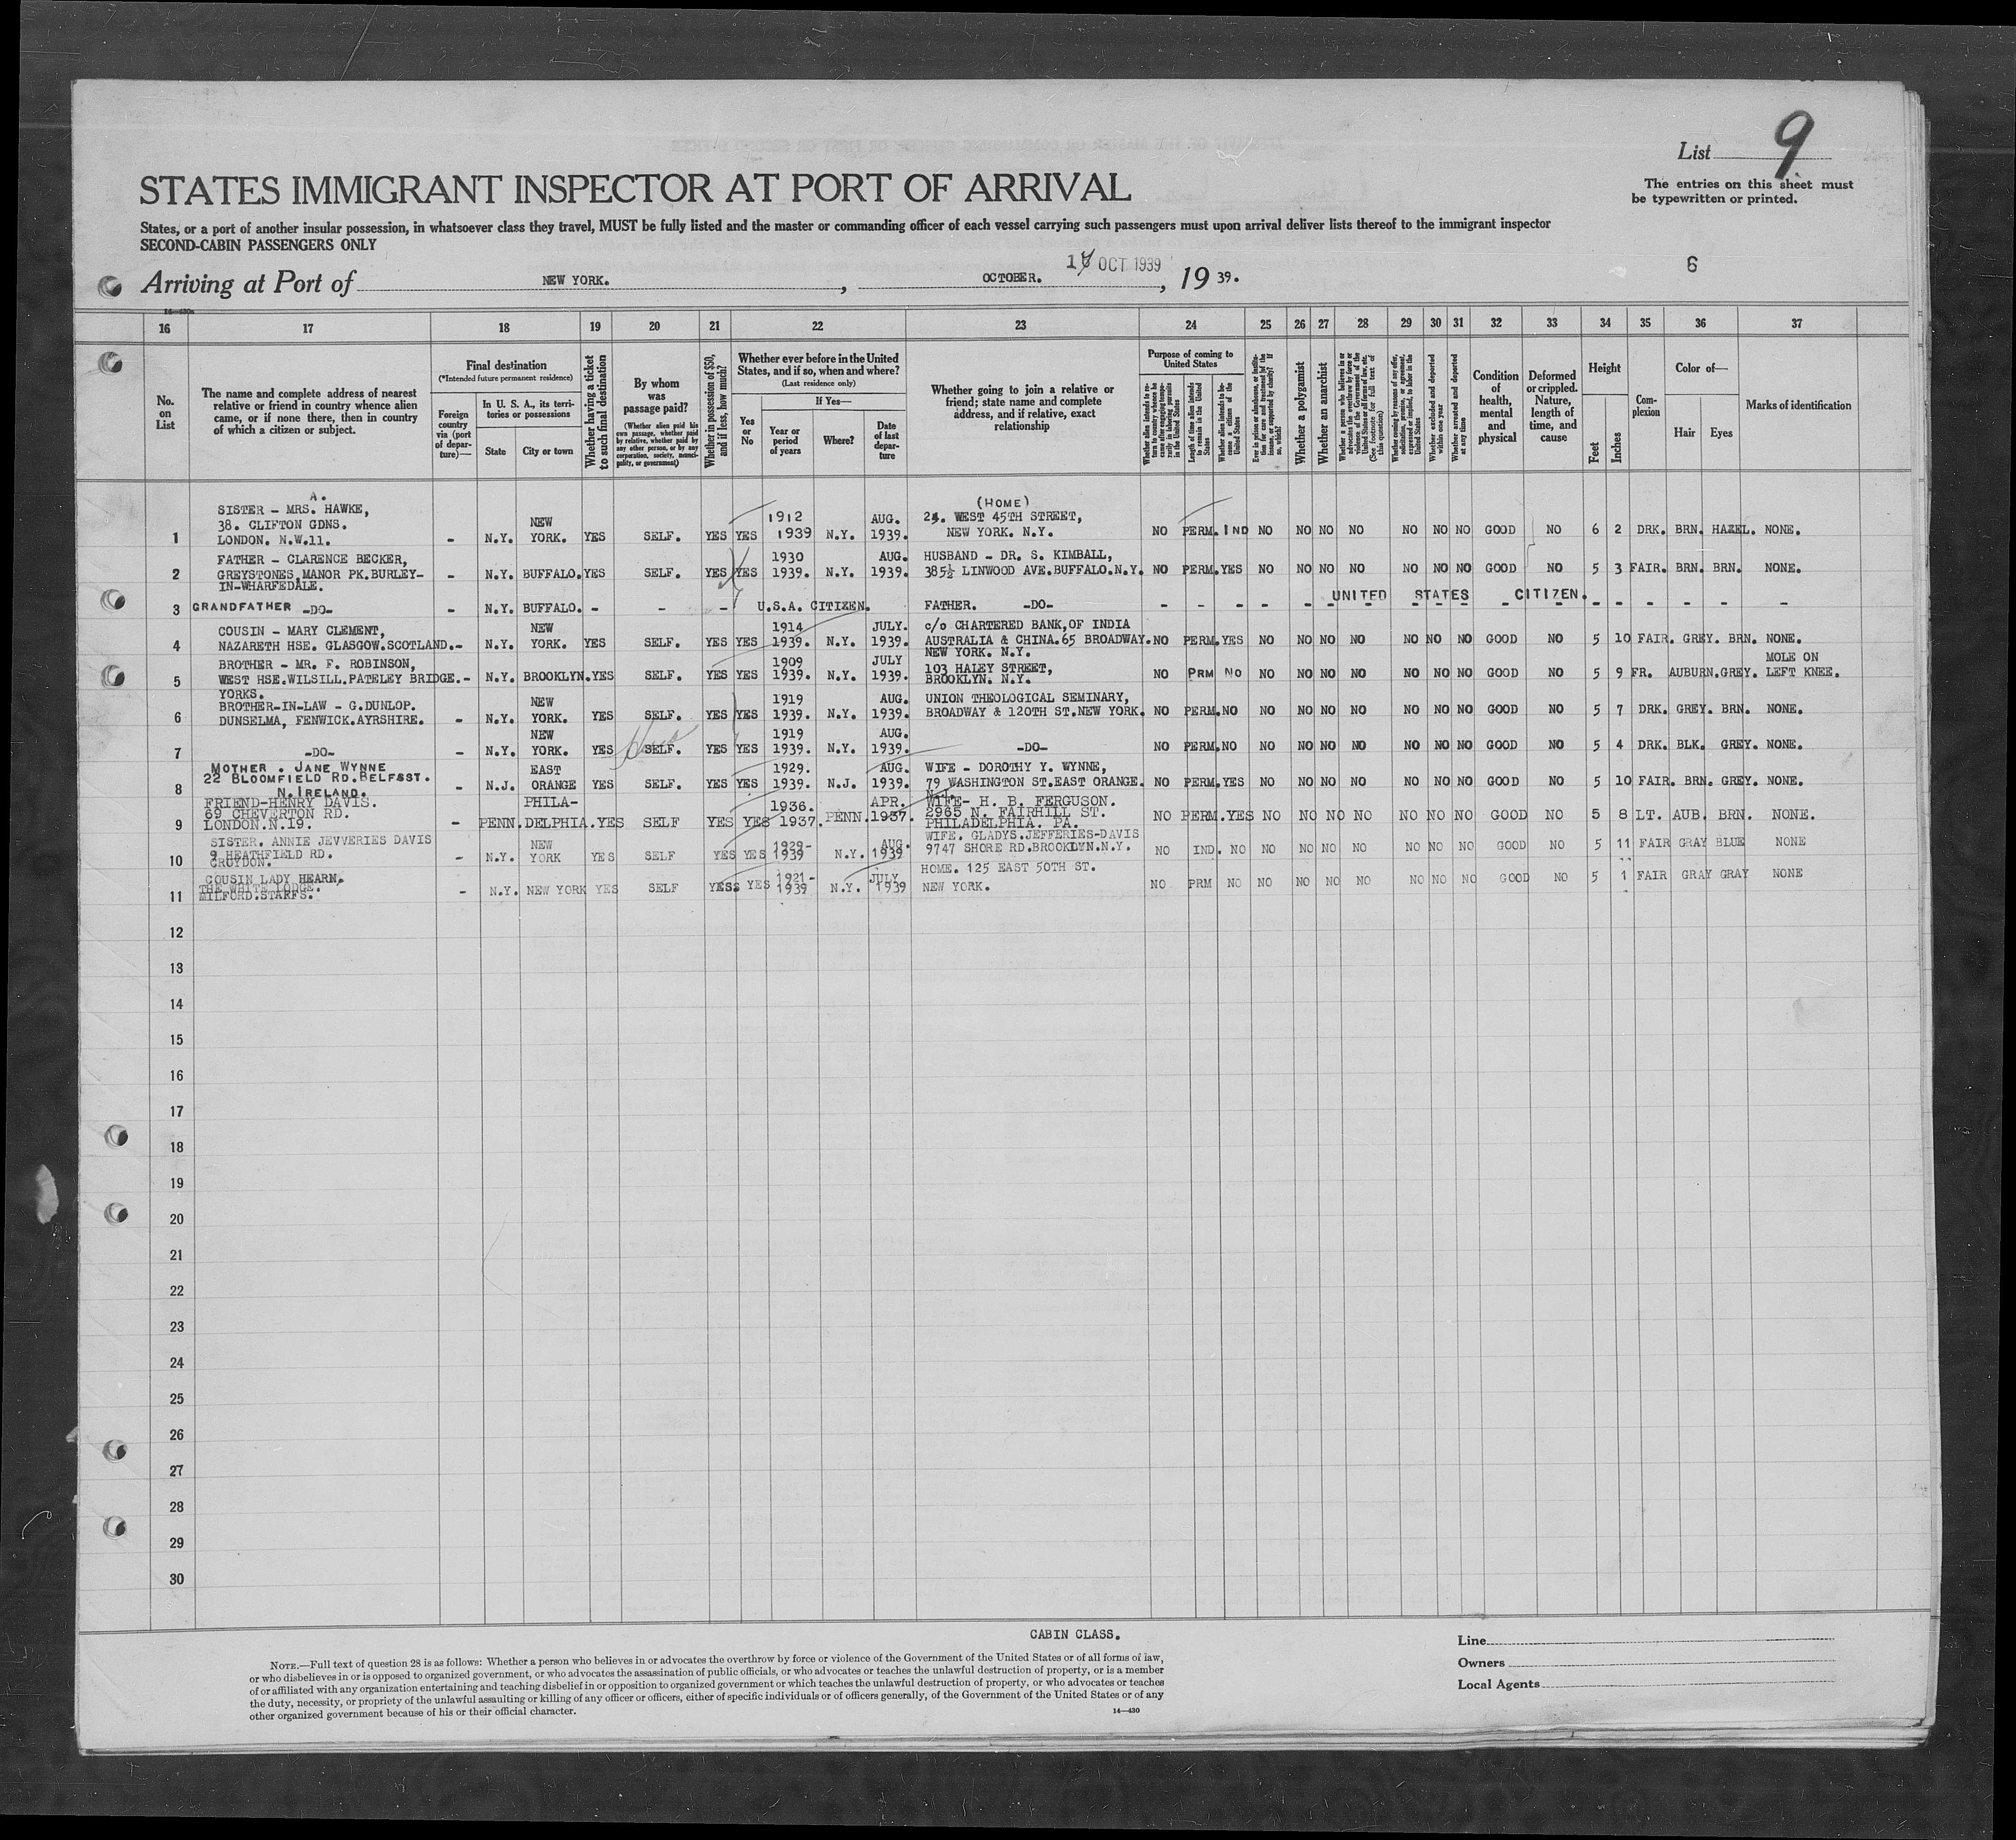 List 9
The entries on this sheet must
be typewritten or printed.
STATES IMMIGRANT INSPECTOR AT PORT OF ARRIVAL
States, or a port of another insular possession, in whatsoever class they travel, MUST be fully listed and the master or commanding officer of each vessel carrying such passengers must upon arrival deliver lists thereof to the immigrant inspector
SECOND-CABIN PASSENGERS ONLY
6
Arriving at Port of NEW YORK. , OCTOBER. OCT 1939 , 19 39.
16 17 18 19 20 21 22 23 24 25 26 27 28 29 30 31 32 33 34 35 36 37
No. on List
The name and complete address of nearest
relative or friend in country whence alien
came, or if none there, then in country
of which a citizen or subject.
Final destination
(*Intended future permanent residence)
Foreign country via (port of departure)—
In U. S. A., its territories or possessions
State
City or town
Whether having a ticket to such final destination
By whom was passage paid?
(Whether alien paid his own passage, whether paid by relative, whether paid by any other person, or by any corporation, society, municipality, or government)
Whether in possession of $50, and if less, how much?
Whether ever before in the United
States, and if so, when and where?
(Last residence only)
Yes or No
If Yes—
Year or period of years
Where?
Date of last departure
Whether going to join a relative or
friend; state name and complete
address, and if relative, exact
relationship
Purpose of coming to United States
Whether alien intends to return to country whence he came after engaging temporarily in laboring pursuits in the United States
Length of time alien intends to remain in the United States
Whether alien intends to become a citizen of the United States
Ever in prison or almshouse, or institution for care and treatment of the insane, or supported by charity? If so, which?
Whether a polygamist
Whether an anarchist
Whether a person who believes in or advocates the overthrow by force or violence of the Government of the United States or all forms of law, etc. (See footnote for full text of this question)
Whether coming by reasons of any offer, solicitation, promise, or agreement, expressed or implied, to labor in the United States
Whether excluded and deported within one year
Whether arrested and deported at any time
Condition of health, mental and physical
Deformed or crippled. Nature, length of time, and cause
Height
Feet
Inches
Complexion
Color of—
Hair
Eyes
Marks of identification
A.
SISTER - MRS. HAWKE, (HOME)
38. CLIFTON GDNS. NEW 1912 AUG. WEST 45TH STREET,
1 LONDON. N.W.11. - N.Y. YORK. YES SELF. YES YES 1939 N.Y. 1939. NEW YORK. N.Y. NO PERM. IND NO NO NO NO NO NO NO GOOD NO 6 2 DRK. BRN. HAZEL. NONE.
FATHER - CLARENCE BECKER, 1930 AUG. HUSBAND - DR. S. KIMBALL,
2 GREYSTONES,MANOR PK.BURLEY- - N.Y. BUFFALO. YES SELF. YES YES 1939. N.Y. 1939. 385½ LINWOOD AVE.BUFFALO.N.Y. NO PERM. YES NO NO NO NO NO NO NO GOOD NO 5 3 FAIR. BRN. BRN. NONE.
IN-WHARFEDALE.
3 GRANDFATHER -DO- - N.Y. BUFFALO. - - - U.S.A. CITIZEN. FATHER. -DO- - - - - - UNITED STATES CITIZEN. - - - - - -
COUSIN - MARY CLEMENT, NEW 1914 JULY. c/o CHARTERED BANK,OF INDIA
4 NAZARETH HSE. GLASGOW.SCOTLAND. - N.Y. YORK. YES SELF. YES YES 1939. N.Y. 1939. AUSTRALIA & CHINA.65 BROADWAY. NO PERM. YES NO NO NO NO NO NO NO GOOD NO 5 10 FAIR. GREY. BRN. NONE.
NEW YORK. N.Y.
BROTHER - MR. F. ROBINSON, 1909 JULY 103 HALEY STREET, MOLE ON
5 WEST HSE.WILSILL.PATELEY BRIDGE. - N.Y. BROOKLYN. YES SELF. YES YES 1939. N.Y. 1939. BROOKLYN. N.Y. NO PRM NO NO NO NO NO NO NO NO GOOD NO 5 9 FR. AUBURN. GREY. LEFT KNEE.
YORKS.
BROTHER-IN-LAW - G.DUNLOP. NEW 1919 AUG. UNION THEOLOGICAL SEMINARY,
6 DUNSELMA, FENWICK.AYRSHIRE. - N.Y. YORK. YES SELF. YES YES 1939. N.Y. 1939. BROADWAY & 120TH ST.NEW YORK. NO PERM. NO NO NO NO NO NO NO NO GOOD NO 5 7 DRK. GREY. BRN. NONE.
NEW 1919 AUG.
7 -DO- - N.Y. YORK. YES SELF. YES YES 1939. N.Y. 1939. -DO- NO PERM. NO NO NO NO NO NO NO NO GOOD NO 5 4 DRK. BLK. GREY. NONE.
MOTHER . JANE WYNNE EAST 1929. AUG. WIFE - DOROTHY Y. WYNNE,
22 BLOOMFIELD RD.BELFAST.
8 N.IRELAND. - N.J. ORANGE YES SELF. YES YES 1939. N.J. 1939. 79 WASHINGTON ST.EAST ORANGE. NO PERM. YES NO NO NO NO NO NO NO GOOD NO 5 10 FAIR. BRN. GREY. NONE.
N.J.
FRIEND-HENRY DAVIS. PHILA- 1936. APR. WIFE- H. B. FERGUSON.
69 CHEVERTON RD. 2965 N. FAIRHILL ST.
9 LONDON.N.19. - PENN. DELPHIA. YES SELF YES YES 1937. PENN. 1937. PHILADELPHIA. PA. NO PERM. YES NO NO NO NO NO NO NO GOOD NO 5 8 LT. AUB. BRN. NONE.
SISTER. ANNIE JEVVERIES DAVIS NEW 1929- AUG. WIFE. GLADYS.JEFFERIES-DAVIS
10 9 HEATHFIELD RD. - N.Y. YORK YES SELF YES YES 1939 N.Y. 1939 9747 SHORE RD.BROOKLYN.N.Y. NO IND. NO NO NO NO NO NO NO NO GOOD NO 5 11 FAIR GRAY BLUE NONE
CROYDON.
COUSIN LADY HEARN. 1921- JULY HOME. 125 EAST 50TH ST.
THE WHITE LODGE.
11 MILFORD.STARFS. - N.Y. NEW YORK YES SELF YES YES 1939 N.Y. 1939 NEW YORK. NO PRM NO NO NO NO NO NO NO NO GOOD NO 5 1 FAIR GRAY GRAY NONE
12
13
14
15
16
17
18
19
20
21
22
23
24
25
26
27
28
29
30
CABIN CLASS.
NOTE.—Full text of question 28 is as follows: Whether a person who believes in or advocates the overthrow by force or violence of the Government of the United States or of all forms of law,
or who disbelieves in or is opposed to organized government, or who advocates the assassination of public officials, or who advocates or teaches the unlawful destruction of property, or is a member
of or affiliated with any organization entertaining and teaching disbelief in or opposition to organized government or which teaches the unlawful destruction of property, or who advocates or teaches
the duty, necessity, or propriety of the unlawful assaulting or killing of any officer or officers, either of specific individuals or of officers generally, of the Government of the United States or of any
other organized government because of his or their official character.
14—430
Line
Owners
Local Agents